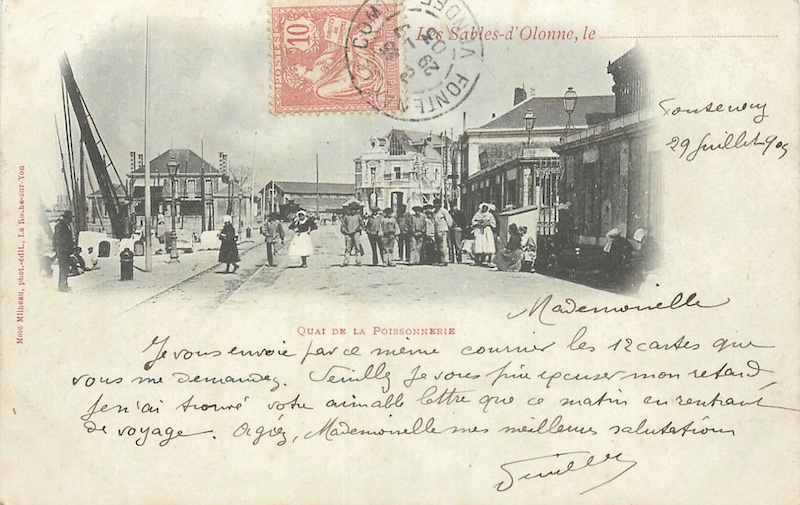 10
POSTES
Les Sables-d'Olonne, le
29 Juillet 905
Mme Milheau, phot.-édit., La Roche-sur-Yon
QUAI DE LA POISSONNERIE
Mademoiselle
Je vous envoie par ce même courrier les 12 cartes que
vous me demandez. Veuillez je vous prie excuser mon retard
je n'ai trouvé votre aimable lettre que ce matin en rentrant
de voyage. Agréez, Mademoiselle mes meilleures salutations